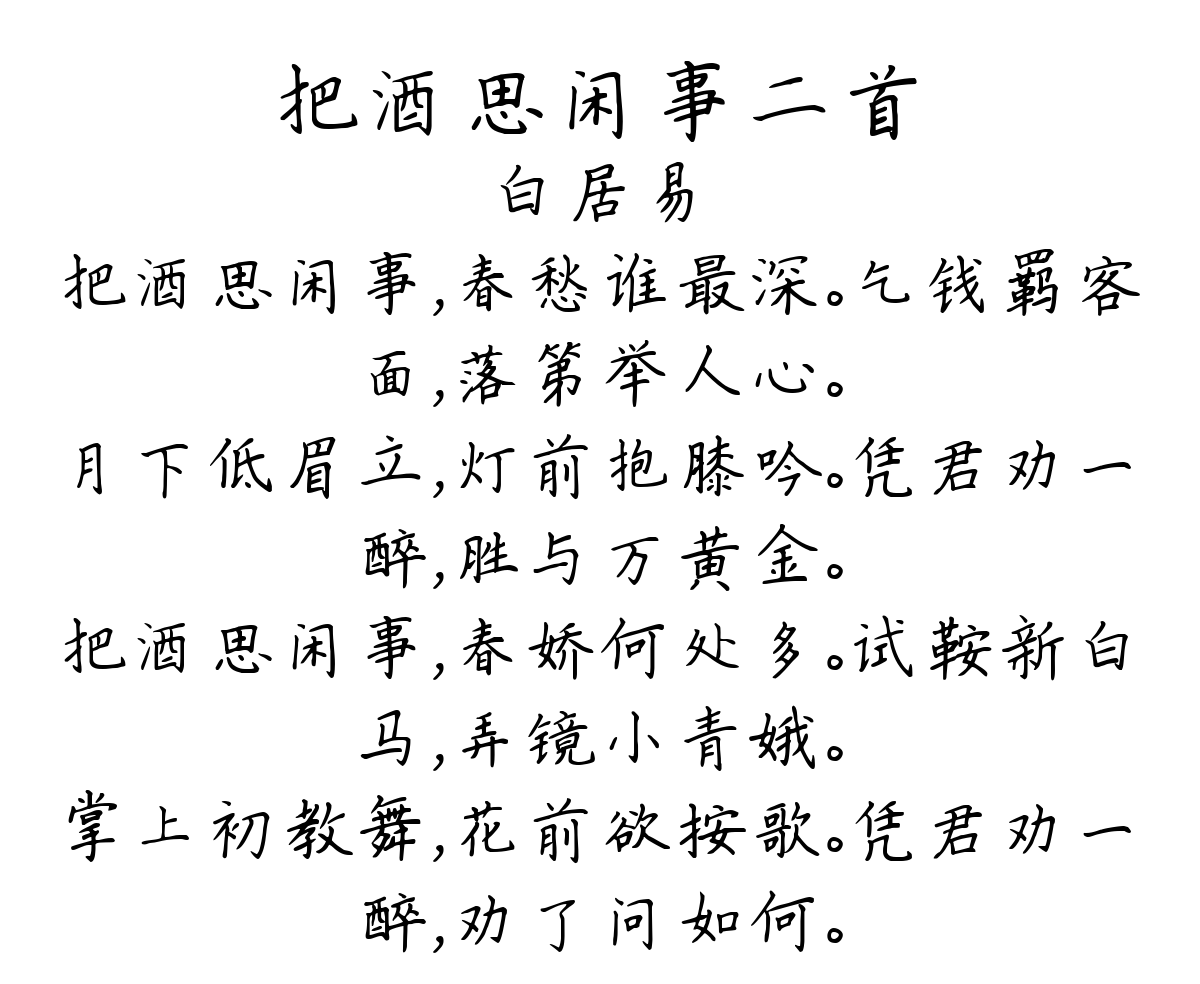 把酒思闲事二首
白居易
把酒思闲事,春愁谁最深。乞钱羁客
面,落第举人心。
月下低眉立,灯前抱膝吟。凭君劝一
醉,胜与万黄金。
把酒思闲事,春娇何处多。试鞍新白
马,弄镜小青娥。
掌上初教舞,花前欲按歌。凭君劝一
醉,劝了问如何。